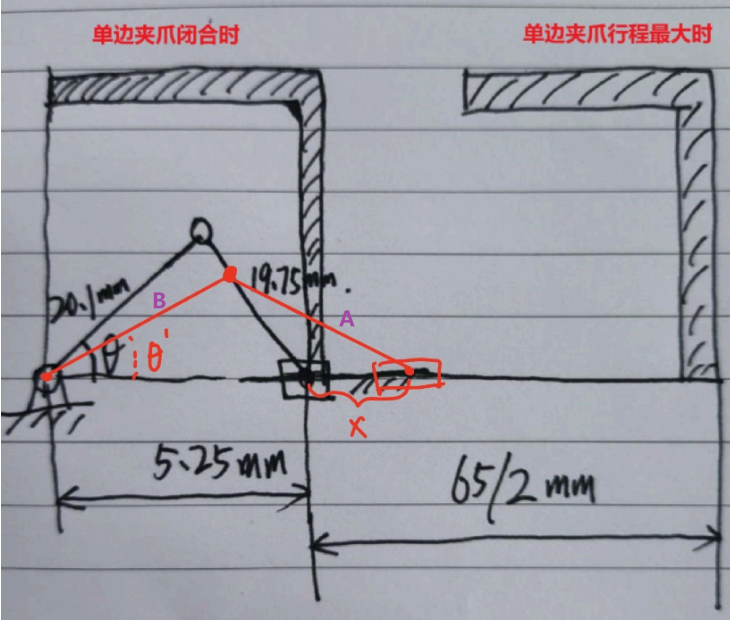 单边夹爪闭合时
单边夹爪行程最大时
20.1mm
B
19.75mm.
A
θ
θ'
x
5.25mm
65/2mm